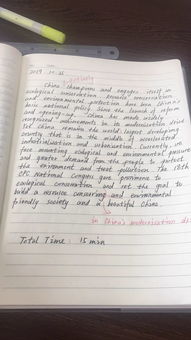 2019. 10. 25
actively
China champions and engages itself in
ecological conservation. Resource conservation
and environmental protection have been China's
basic national policy. Since the launch of reform
and opening-up, China has made widely
recognized achievements in its modernization drive.
Yet China remains the world largest developing
country that is in the middle of accelerated
industrialization and urbanization. Currently, we
face mounting ecological and environmental pressure
and greater demand from the people to protect
the environment and treat pollution. The 18th
CPC National Congress gave prominence to
ecological conservation and set the goal to
build a resource conserving and environmental
friendly society and a beautiful China.
in China's modernization
Total Time: 15 min